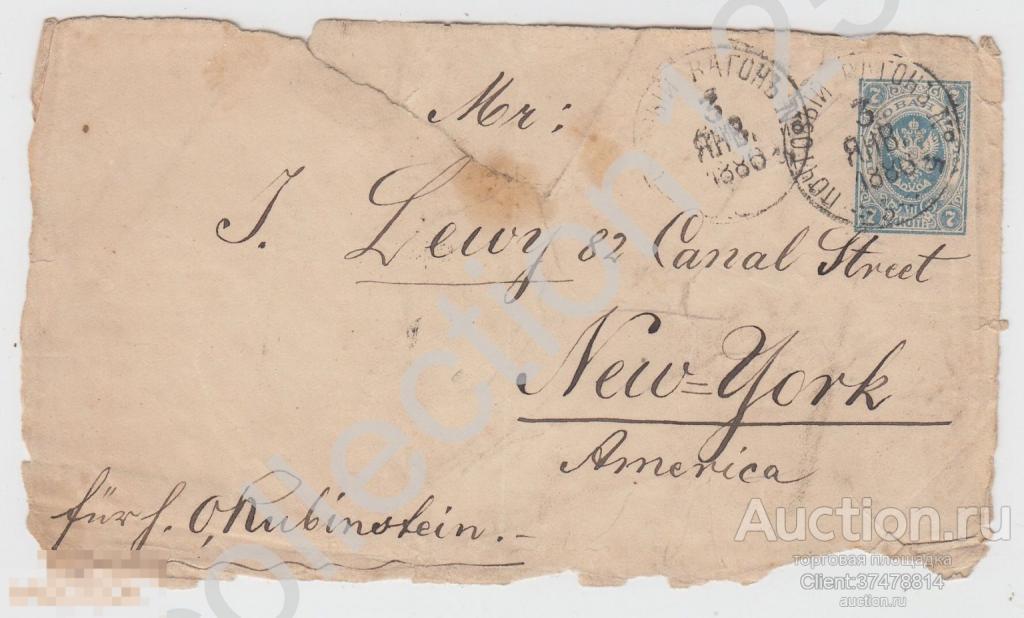 Mr:
J. Lewy 82 Canal Street
New=York
America
für H. O, Rubinstein.-
ПОЧТОВЫЙ ВАГОНЪ
3
ЯНВ.
1886
ПОЧТОВЫЙ ВАГОНЪ
3
ЯНВ.
1886
7
7
7
7
collection 125
Auction.ru
торговая площадка
Client:37478814
auction.ru